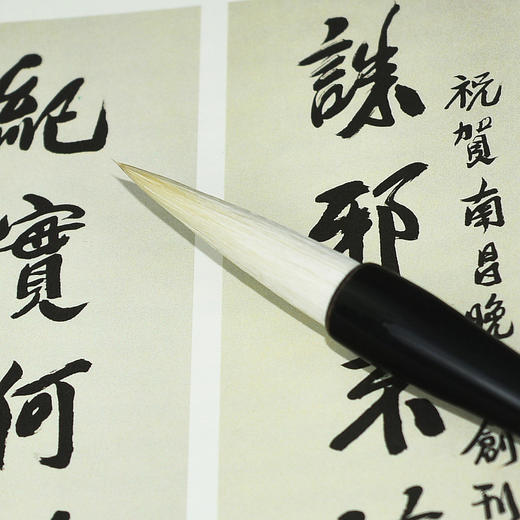 祝賀南昌晚創刊
誅邪
紀實何